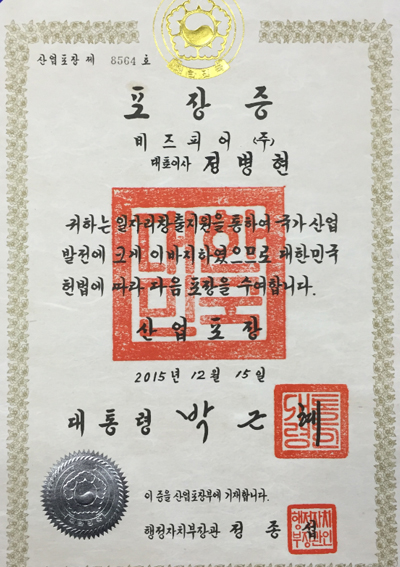 산업포장 제 8564 호
포장증
비즈피어(주)
대표이사 정병현
귀하는 일자리창출지원을 통하여 국가산업
발전에 크게 이바지하였으므로 대한민국
헌법에 따라 다음 포장을 수여합니다.
산업포장
2015년 12월 15일
대통령 박근혜
이 증을 산업포장부에 기재합니다.
행정자치부장관 정종섭
행정자치
부장관인